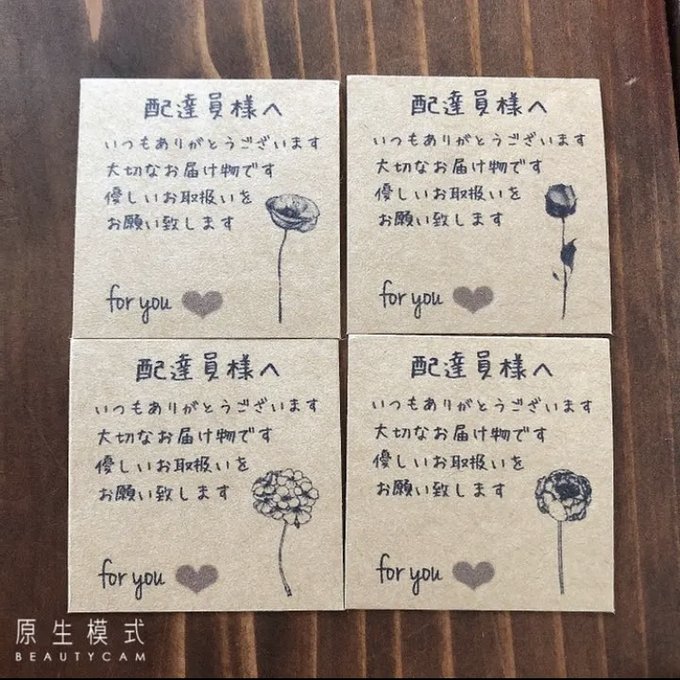 配達員様へ
いつもありがとうございます
大切なお届け物です
優しいお取扱いを
お願い致します
for you
配達員様へ
いつもありがとうございます
大切なお届け物です
優しいお取扱いを
お願い致します
for you
配達員様へ
いつもありがとうございます
大切なお届け物です
優しいお取扱いを
お願い致します
for you
配達員様へ
いつもありがとうございます
大切なお届け物です
優しいお取扱いを
お願い致します
for you
原生模式
BEAUTYCAM